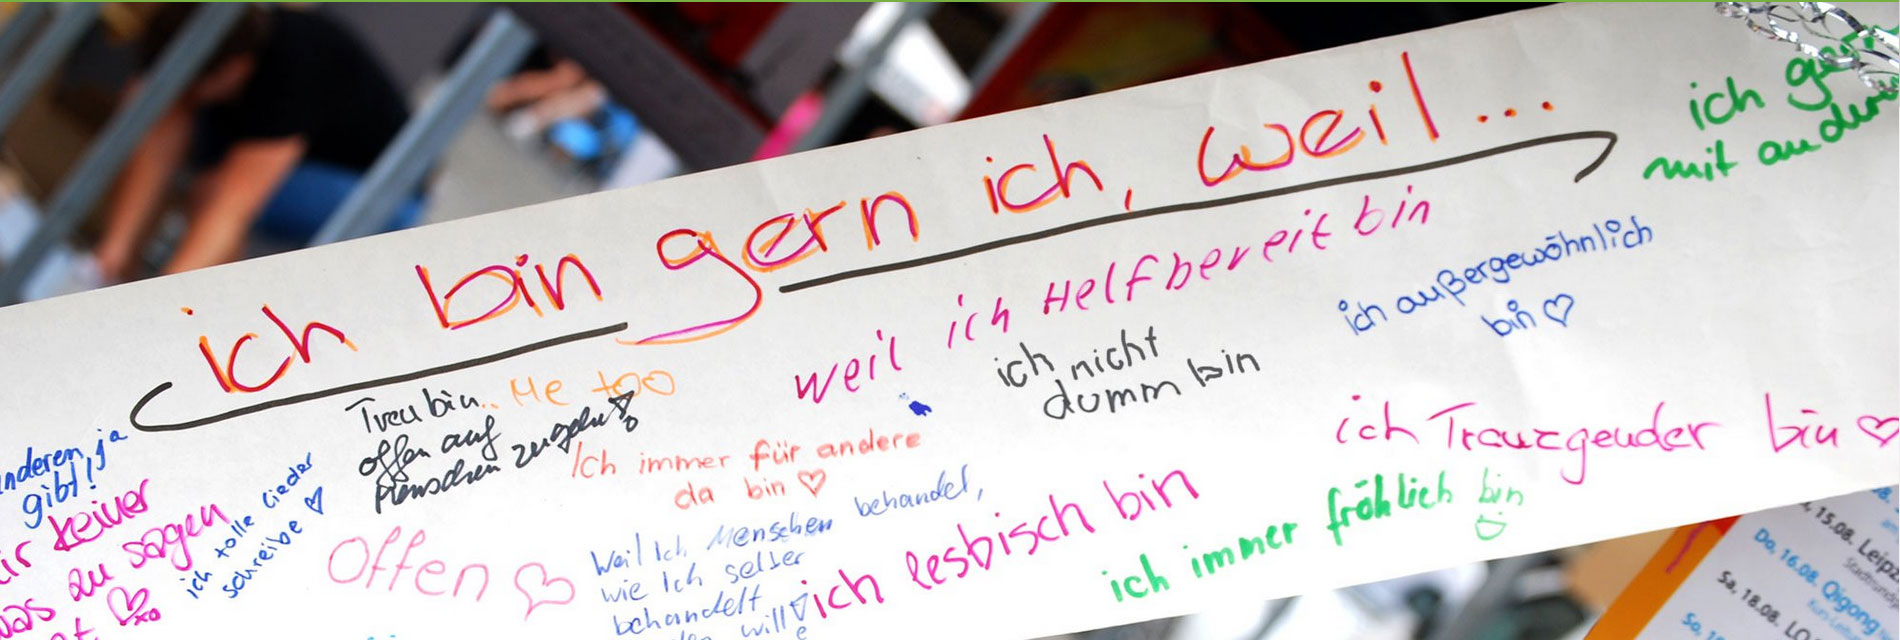 ich bin gern ich, weil...
ich
mit
weil ich Helfbereit bin
ich außergewöhnlich
bin ♡
ich nicht
dumm bin
Treu bin..
Me too
offen auf
Menschen zugehe
Ich immer für andere
da bin ♡
ich Tranzgender bin ♡
nderen, ja
gibt!
keiner
zu sagen
ich tolle Lieder
schreibe ♡
Offen ♡
Weil Ich Menschen behandel,
wie Ich selber
behandelt
will
ich lesbisch bin
ich immer fröhlich bin
15.08. Leipz
Do, 16.08. Qigong
Sa, 18.08.
So,